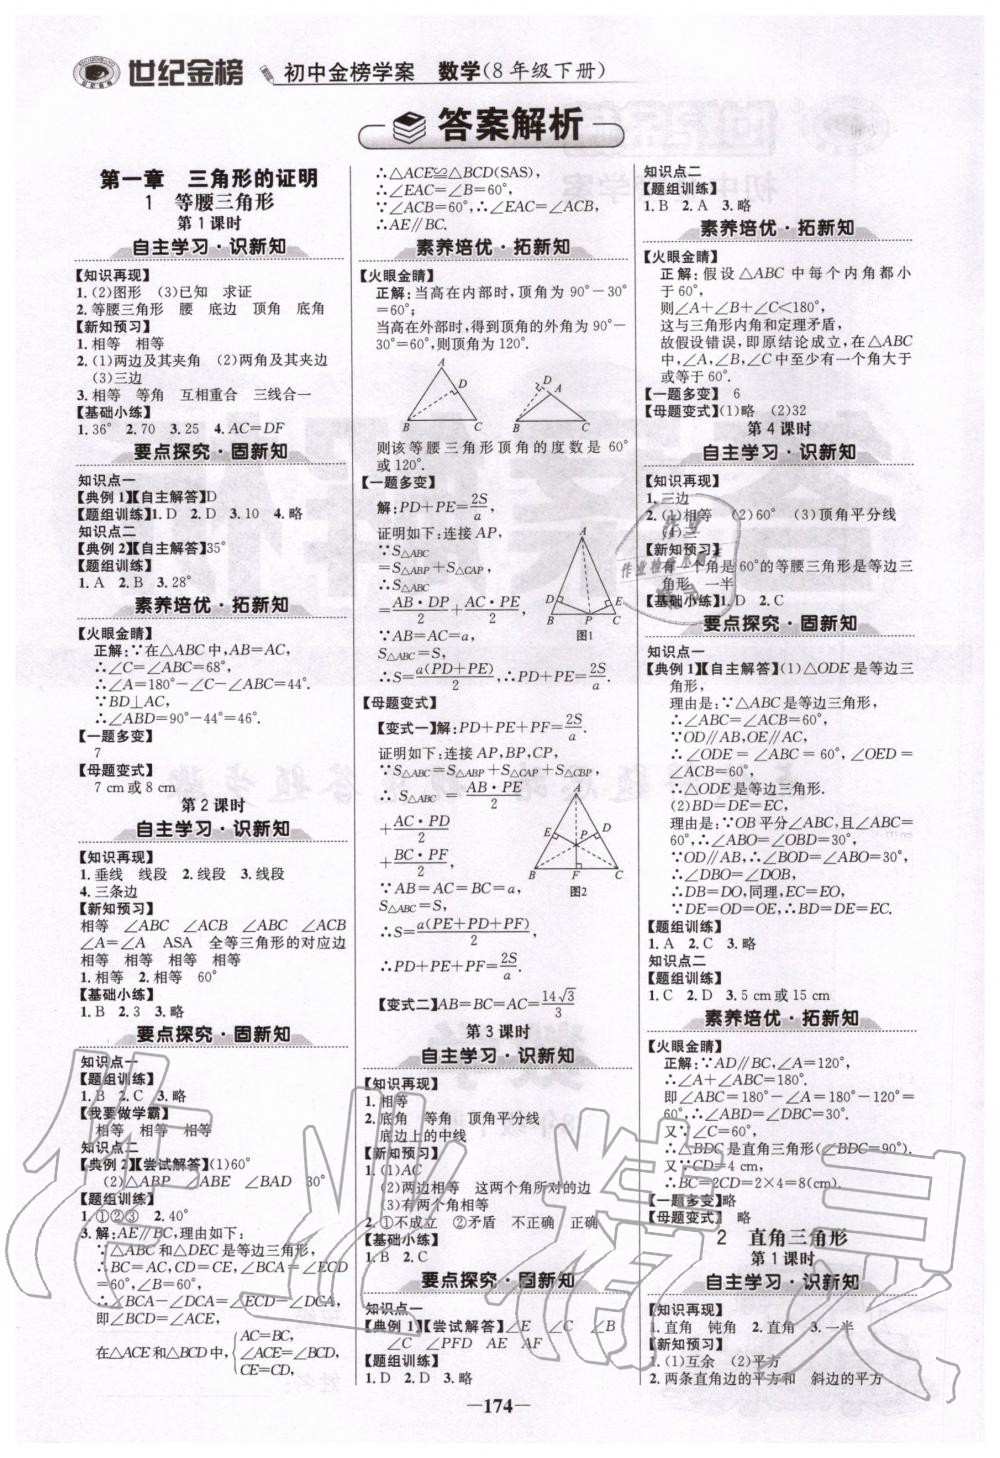 世纪金榜 初中金榜学案 数学(8年级下册)
答案解析
第一章 三角形的证明
1 等腰三角形
第1课时
自主学习·识新知
【知识再现】
1.(2)图形 (3)已知 求证
2.等腰三角形 腰 底边 顶角 底角
【新知预习】
1.相等 相等
2.(1)两边及其夹角 (2)两角及其夹边
(3)三边
3.相等 等角 互相重合 三线合一
【基础小练】
1.36° 2.70 3.25 4.AC=DF
要点探究·固新知
知识点一
【典例1】【自主解答】D
【题组训练】1.D 2.D 3.10 4.略
知识点二
【典例2】【自主解答】35°
【题组训练】
1.A 2.B 3.28°
素养培优·拓新知
【火眼金睛】
正解:∵在△ABC中,AB=AC,
∴∠C=∠ABC=68°,
∴∠A=180°-∠C-∠ABC=44°.
∵BD⊥AC,
∴∠ABD=90°-44°=46°.
【一题多变】
7
【母题变式】
7 cm或8 cm
第2课时
自主学习·识新知
【知识再现】
1.垂线 线段 2.线段 3.线段
4.三条边
【新知预习】
相等 ∠ABC ∠ACB ∠ABC ∠ACB
∠A=∠A ASA 全等三角形的对应边
相等 相等 相等 相等
1.相等 2.相等 60°
【基础小练】
1.B 2.3 3.略
要点探究·固新知
知识点一
【题组训练】
1.B 2.C 3.略
【我要做学霸】
相等 相等 相等
知识点二
【典例2】【尝试解答】(1)60°
(2)△ABP ∠ABE ∠BAD 30°
【题组训练】
1.①②③ 2.40°
3.解:AE∥BC,理由如下:
∵△ABC和△DEC是等边三角形,
∴BC=AC,CD=CE,∠BCA=∠ECD
=60°,∠B=60°.
∴∠BCA-∠DCA=∠ECD-∠DCA,
即∠BCD=∠ACE,
在△ACE和△BCD中,{AC=BC,
∠ACE=∠BCD,
CE=CD,
∴△ACE≌△BCD(SAS),
∴∠EAC=∠B=60°,
∵∠ACB=60°,∴∠EAC=∠ACB,
∴AE∥BC.
素养培优·拓新知
【火眼金睛】
正解:当高在内部时,顶角为90°-30°
=60°;
当高在外部时,得到顶角的外角为90°-
30°=60°,则顶角为120°.
A D B C
D A B C
则该等腰三角形顶角的度数是60°
或120°.
【一题多变】
解:PD+PE=2S/a,
证明如下:连接AP,
∵S△ABC
=S△ABP+S△CAP,
∴S△ABC
=AB·DP/2+AC·PE/2,
A D E B P C
图1
∵AB=AC=a,
S△ABC=S,
∴S=a(PD+PE)/2,∴PD+PE=2S/a.
【母题变式】
【变式一】解:PD+PE+PF=2S/a.
证明如下:连接AP,BP,CP,
∵S△ABC=S△ABP+S△CAP+S△CBP
∴S△ABC=AB·PE/2
+AC·PD/2
+BC·PF/2,
A E D P B F C
图2
∵AB=AC=BC=a,
S△ABC=S,
∴S=a(PE+PD+PF)/2,
∴PD+PE+PF=2S/a.
【变式二】AB=BC=AC=14√3/3
第3课时
自主学习·识新知
【知识再现】
1.相等
2.底角 等角 顶角平分线
底边上的中线
【新知预习】
1.(1)AC
(2)两边相等 这两个角所对的边
(3)有两个角相等
2.①不成立 ②矛盾 不正确 正确
【基础小练】
1.B 2.C
要点探究·固新知
知识点一
【典例1】【尝试解答】∠E ∠C ∠B
∠C ∠PFD AE AF
【题组训练】
1.D 2.D 3.略
知识点二
【题组训练】
1.B 2.A 3.略
素养培优·拓新知
【火眼金睛】
正解:假设△ABC中每个内角都小
于60°,
则∠A+∠B+∠C<180°,
这与三角形内角和定理矛盾,
故假设错误,即原结论成立,在△ABC
中,∠A,∠B,∠C中至少有一个角大于
或等于60°.
【一题多变】 6
【母题变式】(1)略 (2)32
第4课时
自主学习·识新知
【知识再现】
1.三边
2.(1)相等 (2)60° (3)顶角平分线
【新知预习】
有一个角是60°的等腰三角形是等边三
角形 一半
【基础小练】1.D 2.C
要点探究·固新知
知识点一
【典例1】【自主解答】(1)△ODE是等边三
角形,
理由是:∵△ABC是等边三角形,
∴∠ABC=∠ACB=60°,
∵OD∥AB,OE∥AC,
∴∠ODE=∠ABC=60°,∠OED=
∠ACB=60°,
∴△ODE是等边三角形.
(2)BD=DE=EC,
理由是:∵OB平分∠ABC,且∠ABC=
60°,∴∠ABO=∠OBD=30°,
∵OD∥AB,∴∠BOD=∠ABO=30°,
∴∠DBO=∠DOB,
∴DB=DO,同理,EC=EO,
∵DE=OD=OE,∴BD=DE=EC.
【题组训练】
1.A 2.C 3.略
知识点二
【题组训练】
1.C 2.D 3.5 cm或15 cm
素养培优·拓新知
【火眼金睛】
正解:∵AD∥BC,∠A=120°,
∴∠A+∠ABC=180°.
即∠ABC=180°-∠A=180°-120°=
60°,∴∠ABD=∠DBC=30°.
又∵∠C=60°,
∴△BDC是直角三角形(∠BDC=90°).
又∵CD=4 cm,
∴BC=2CD=2×4=8(cm).
【一题多变】略
【母题变式】 略
2 直角三角形
第1课时
自主学习·识新知
【知识再现】
1.直角 钝角 2.直角 3.一半
【新知预习】
1.(1)互余 (2)平方
2.两条直角边的平方和 斜边的平方
作业精灵
—174—